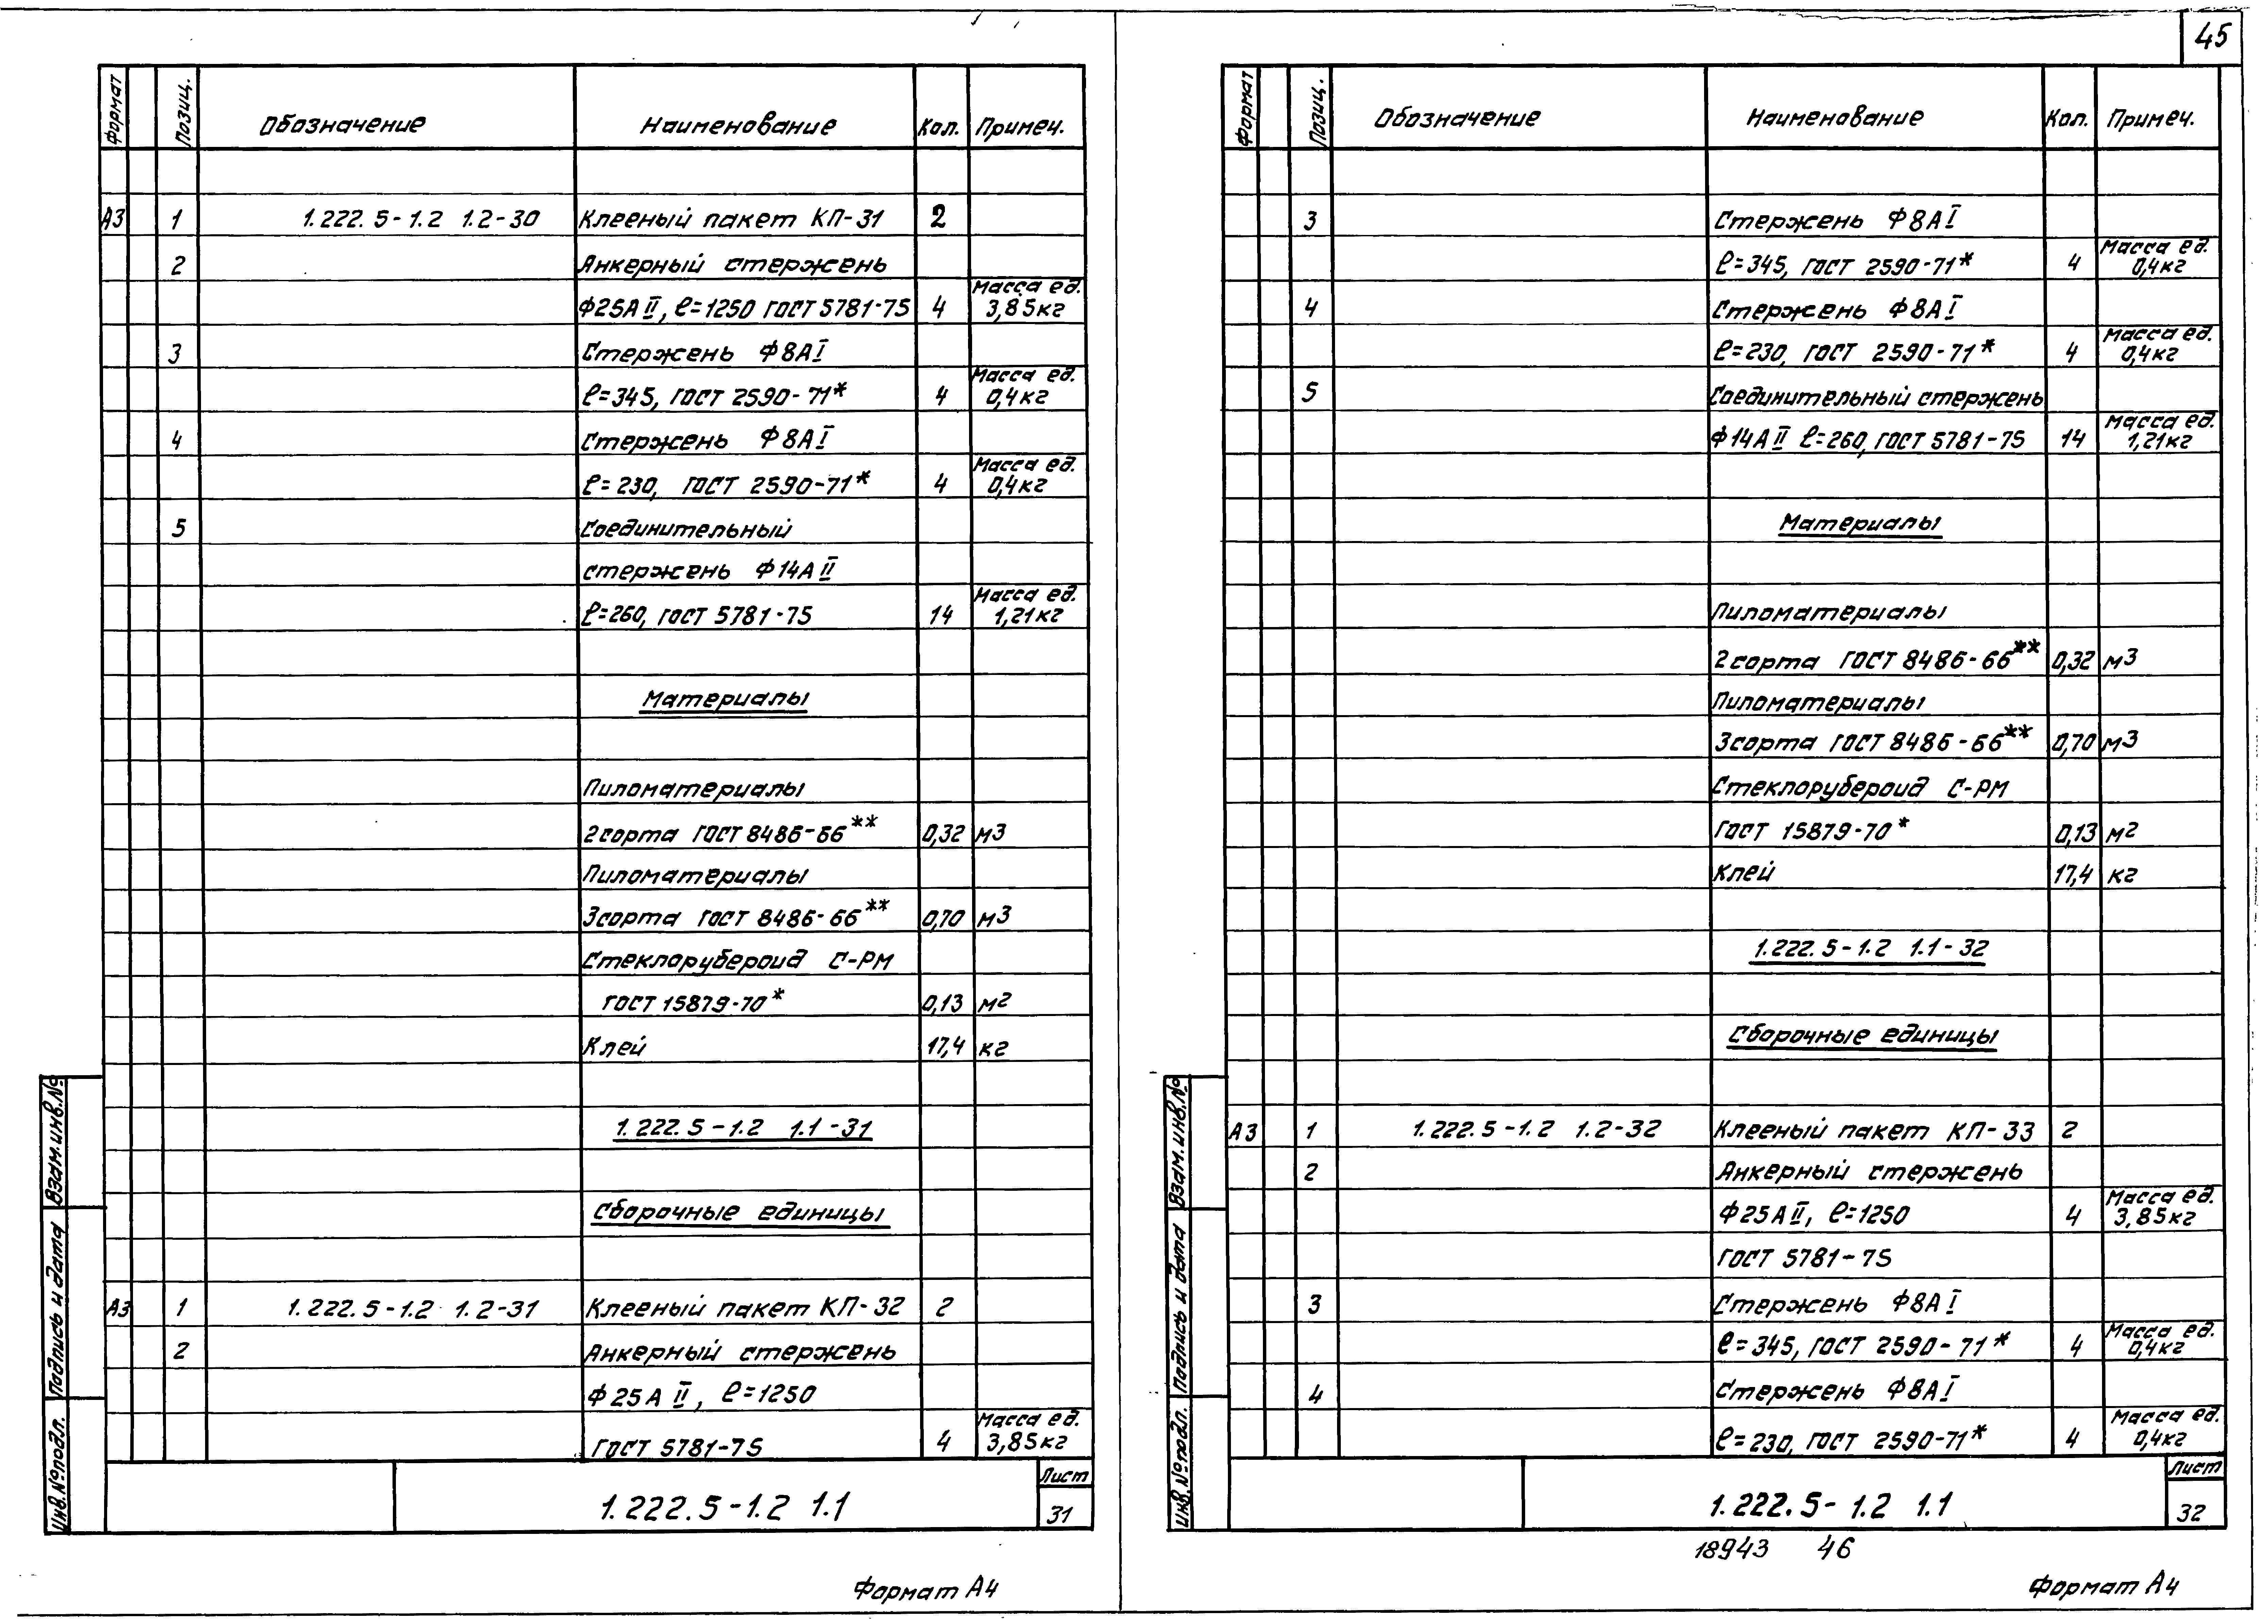 45
Формат Позиц. Обозначение Наименование Кол. Примеч.
А3 1 1.222.5-1.2 1.2-30 Клееный пакет КП-31 2
2 Анкерный стержень
Ф25АII, ℓ=1250 ГОСТ 5781-75 4 Масса ед. 3,85кг
3 Стержень Ф8АI
ℓ=345, ГОСТ 2590-71* 4 Масса ед. 0,4кг
4 Стержень Ф8АI
ℓ=230, ГОСТ 2590-71* 4 Масса ед. 0,4кг
5 Соединительный
стержень Ф14АII
ℓ=260, ГОСТ 5781-75 14 Масса ед. 1,21кг
Материалы
Пиломатериалы
2сорта ГОСТ 8486-66** 0,32 м3
Пиломатериалы
3сорта ГОСТ 8486-66** 0,70 м3
Стеклорубероид С-РМ
ГОСТ 15879-70* 0,13 м2
Клей 17,4 кг
1.222.5-1.2 1.1-31
Сборочные единицы
А3 1 1.222.5-1.2 1.2-31 Клееный пакет КП-32 2
2 Анкерный стержень
Ф25АII, ℓ=1250
ГОСТ 5781-75 4 Масса ед. 3,85кг
Взам.инв.№
Подпись и дата
Инв.№подл.
1.222.5-1.2 1.1
Лист
31
Формат А4
Формат Позиц. Обозначение Наименование Кол. Примеч.
3 Стержень Ф8АI
ℓ=345, ГОСТ 2590-71* 4 Масса ед. 0,4кг
4 Стержень Ф8АI
ℓ=230, ГОСТ 2590-71* 4 Масса ед. 0,4кг
5 Соединительный стержень
Ф14АII ℓ=260, ГОСТ 5781-75 14 Масса ед. 1,21кг
Материалы
Пиломатериалы
2сорта ГОСТ 8486-66** 0,32 м3
Пиломатериалы
3сорта ГОСТ 8486-66** 0,70 м3
Стеклорубероид С-РМ
ГОСТ 15879-70* 0,13 м2
Клей 17,4 кг
1.222.5-1.2 1.1-32
Сборочные единицы
А3 1 1.222.5-1.2 1.2-32 Клееный пакет КП-33 2
2 Анкерный стержень
Ф25АII, ℓ=1250 4 Масса ед. 3,85кг
ГОСТ 5781-75
3 Стержень Ф8АI
ℓ=345, ГОСТ 2590-71* 4 Масса ед. 0,4кг
4 Стержень Ф8АI
ℓ=230, ГОСТ 2590-71* 4 Масса ед. 0,4кг
Взам.инв.№
Подпись и дата
Инв.№подл.
1.222.5-1.2 1.1
Лист
32
18943 46
Формат А4